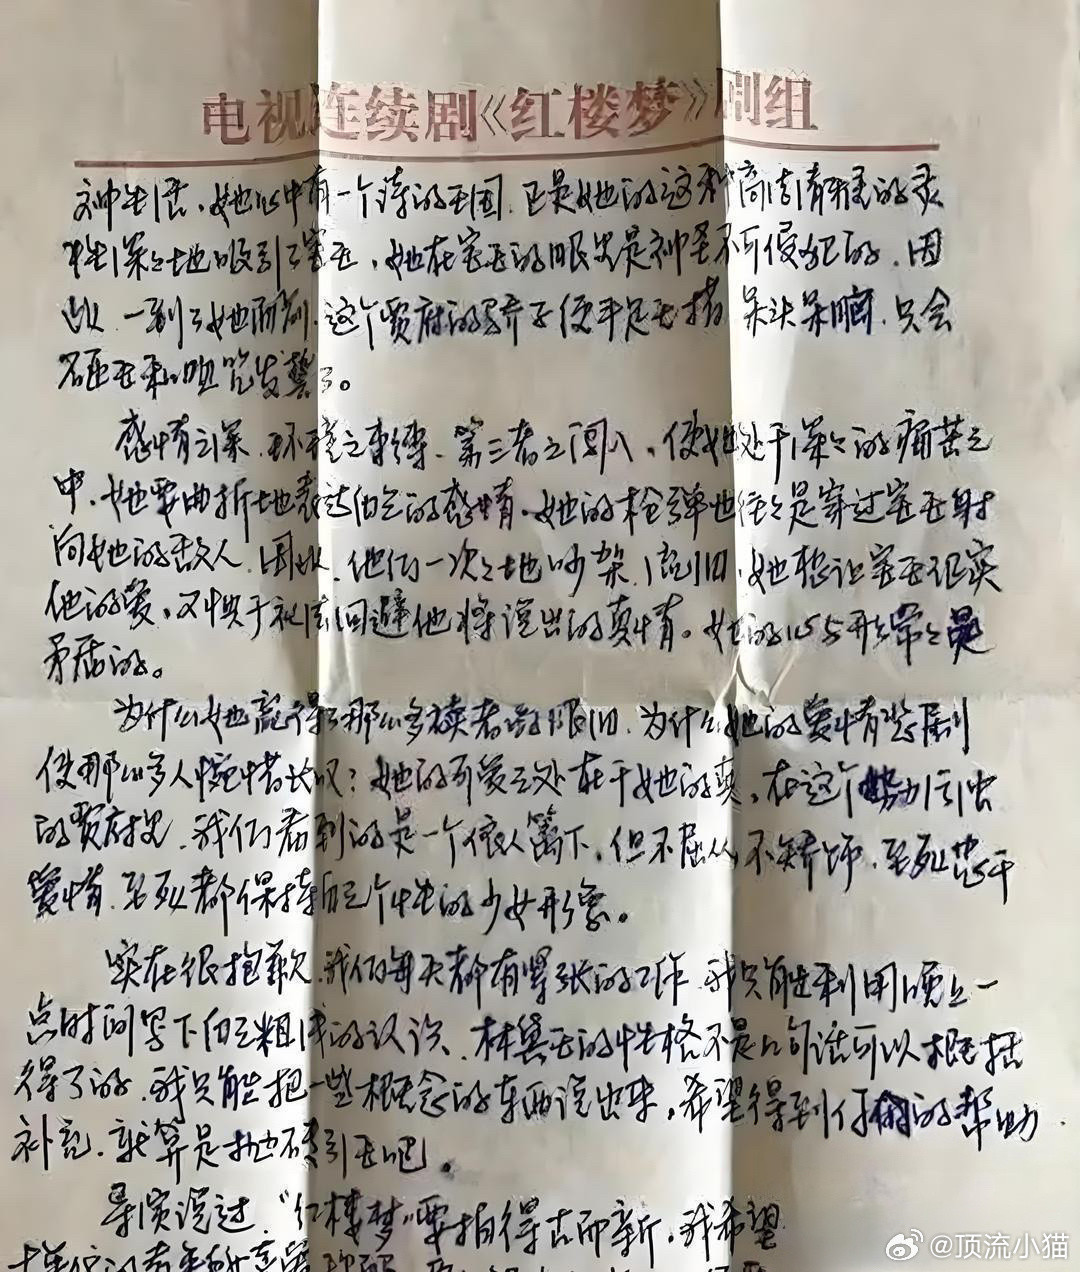 电视连续剧《红楼梦》剧组
神生活，她心中有一个诗的王国，正是她的这种高洁清雅的灵
性深深地吸引了宝玉，她在宝玉的眼里是神圣不可侵犯的，因
此，一到了她面前，这个贾府的骄子便手足无措，呆头呆脑，只会
咀咒发誓了。
感情之深，环境之束缚，第三者之闯入，使她处于深深的痛苦之
中，她要曲折地表达自己的感情，她的枪弹也往往是穿过宝玉射
向她的敌人，因此，他们一次次地吵架，流泪，她想让宝玉证实
他的爱，又惧于礼法回避他将说出的真情。她的心与形常常是
矛盾的。
为什么她赢得了那么多读者的眼泪，为什么她的爱情悲剧
使那么多人惋惜长叹？她的可爱之处在于她的真，在这个势力
的贾府里，我们看到的是一个依人篱下，但不屈从，不矫饰，至死忠于
爱情，至死都保持自己个性的少女形象。
实在很抱歉，我们每天都有紧张的工作，我只能利用晚上一
点时间写下自己粗浅的认识，林黛玉的性格不是几句话可以概括
得了的，我只能把一些概念的东西说出来，希望得到你们的帮助
补充，就算是抛砖引玉吧。
导演说过，“红楼梦”要拍得古而新，我希望